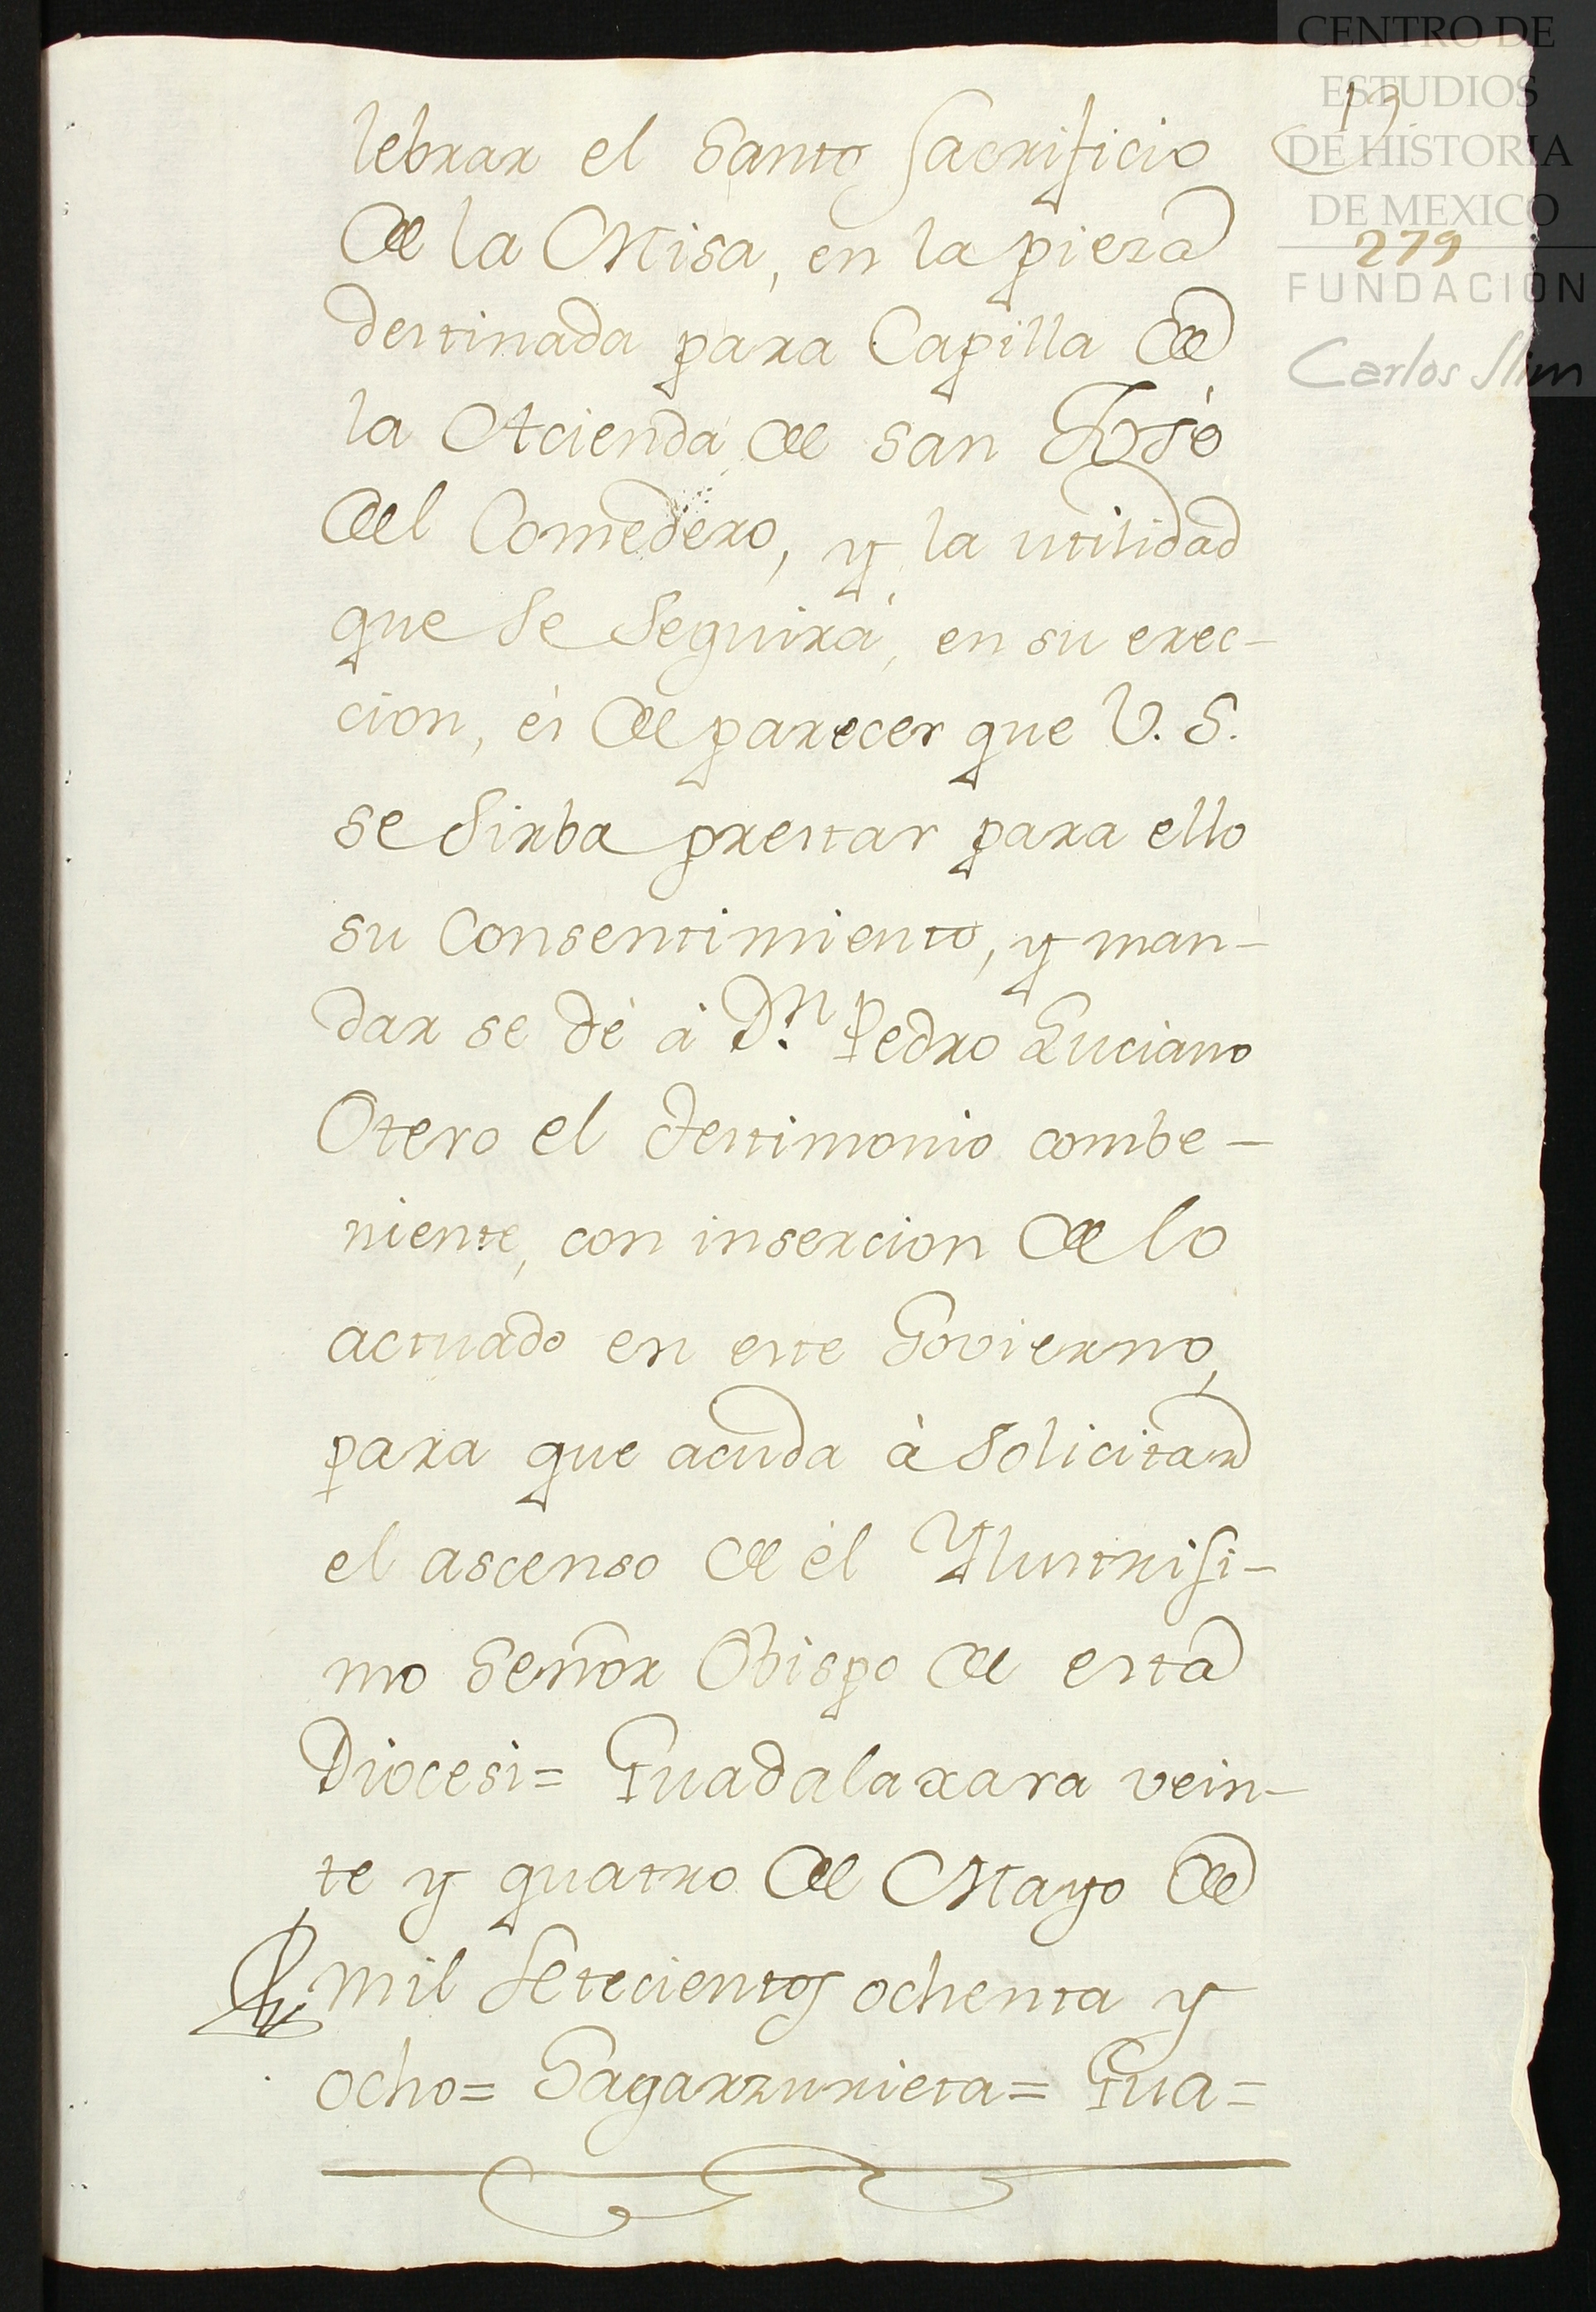 13
279
lebrar el Santo Sacrificio
de la Misa, en la pieza
destinada para Capilla de
la Acienda de San José
del Comedero, y la utilidad
que se seguirá, en su erec-
cion, és de parecer que V. S.
se sirba prestar para ello
su Consentimiento, y man-
dar se dé á D.n Pedro Luciano
Otero el testimonio combe-
niente, con insercion de lo
actuado en este Govierno,
para que acuda à solicitar
el ascenso de él Ylustrisi-
mo Señor Obispo de esta
Diocesi= Guadalaxara vein-
te y quatro de Mayo de
mil setecientos ochenta y
ocho= Gagarzurieta= Gua=
CENTRO DE
ESTUDIOS
DE HISTORIA
DE MEXICO
FUNDACIÓN
Carlos Slim